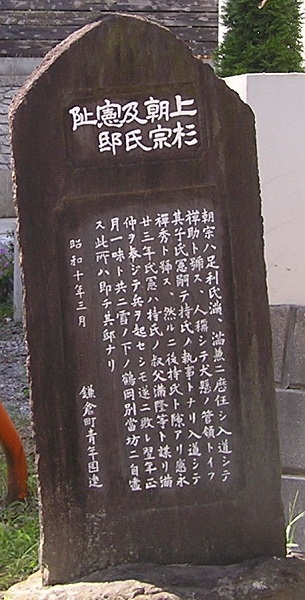 上杉
朝宗
及氏
憲邸
阯
朝宗ハ足利氏満、満兼ニ歴任シ入道シテ
禅助ト號ス、人稱シテ犬懸ノ管領トイフ
其子氏憲嗣テ持氏ノ執事トナリ入道シテ
禅秀ト號ス、然ルニ後持氏ト隙アリ應永
廿三年氏憲ハ持氏ノ叔父満隆等ト謀リ満
仲ヲ奉ジテ兵ヲ起セシモ遂ニ敗レ翌年正
月一味ト共ニ雪ノ下ノ鶴岡別當坊ニ自盡
ス此所ハ即チ其邸ナリ
昭和十年三月
鎌倉町青年団建